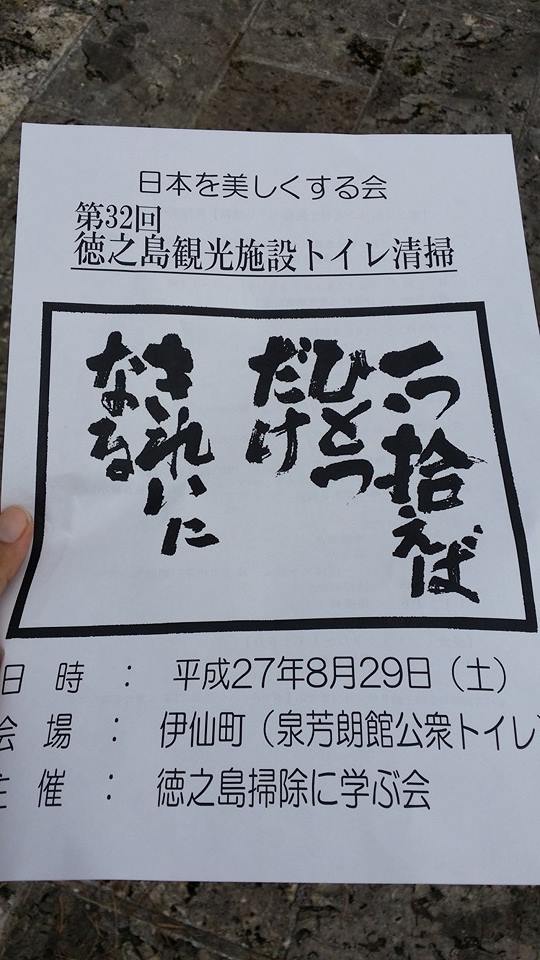 日本を美しくする会
第32回
徳之島観光施設トイレ清掃
一つ拾えば
ひとつ
だけ
きれいに
なる
日時：平成27年8月29日（土）
会場：伊仙町（泉芳朗館公衆トイレ）
主催：徳之島掃除に学ぶ会